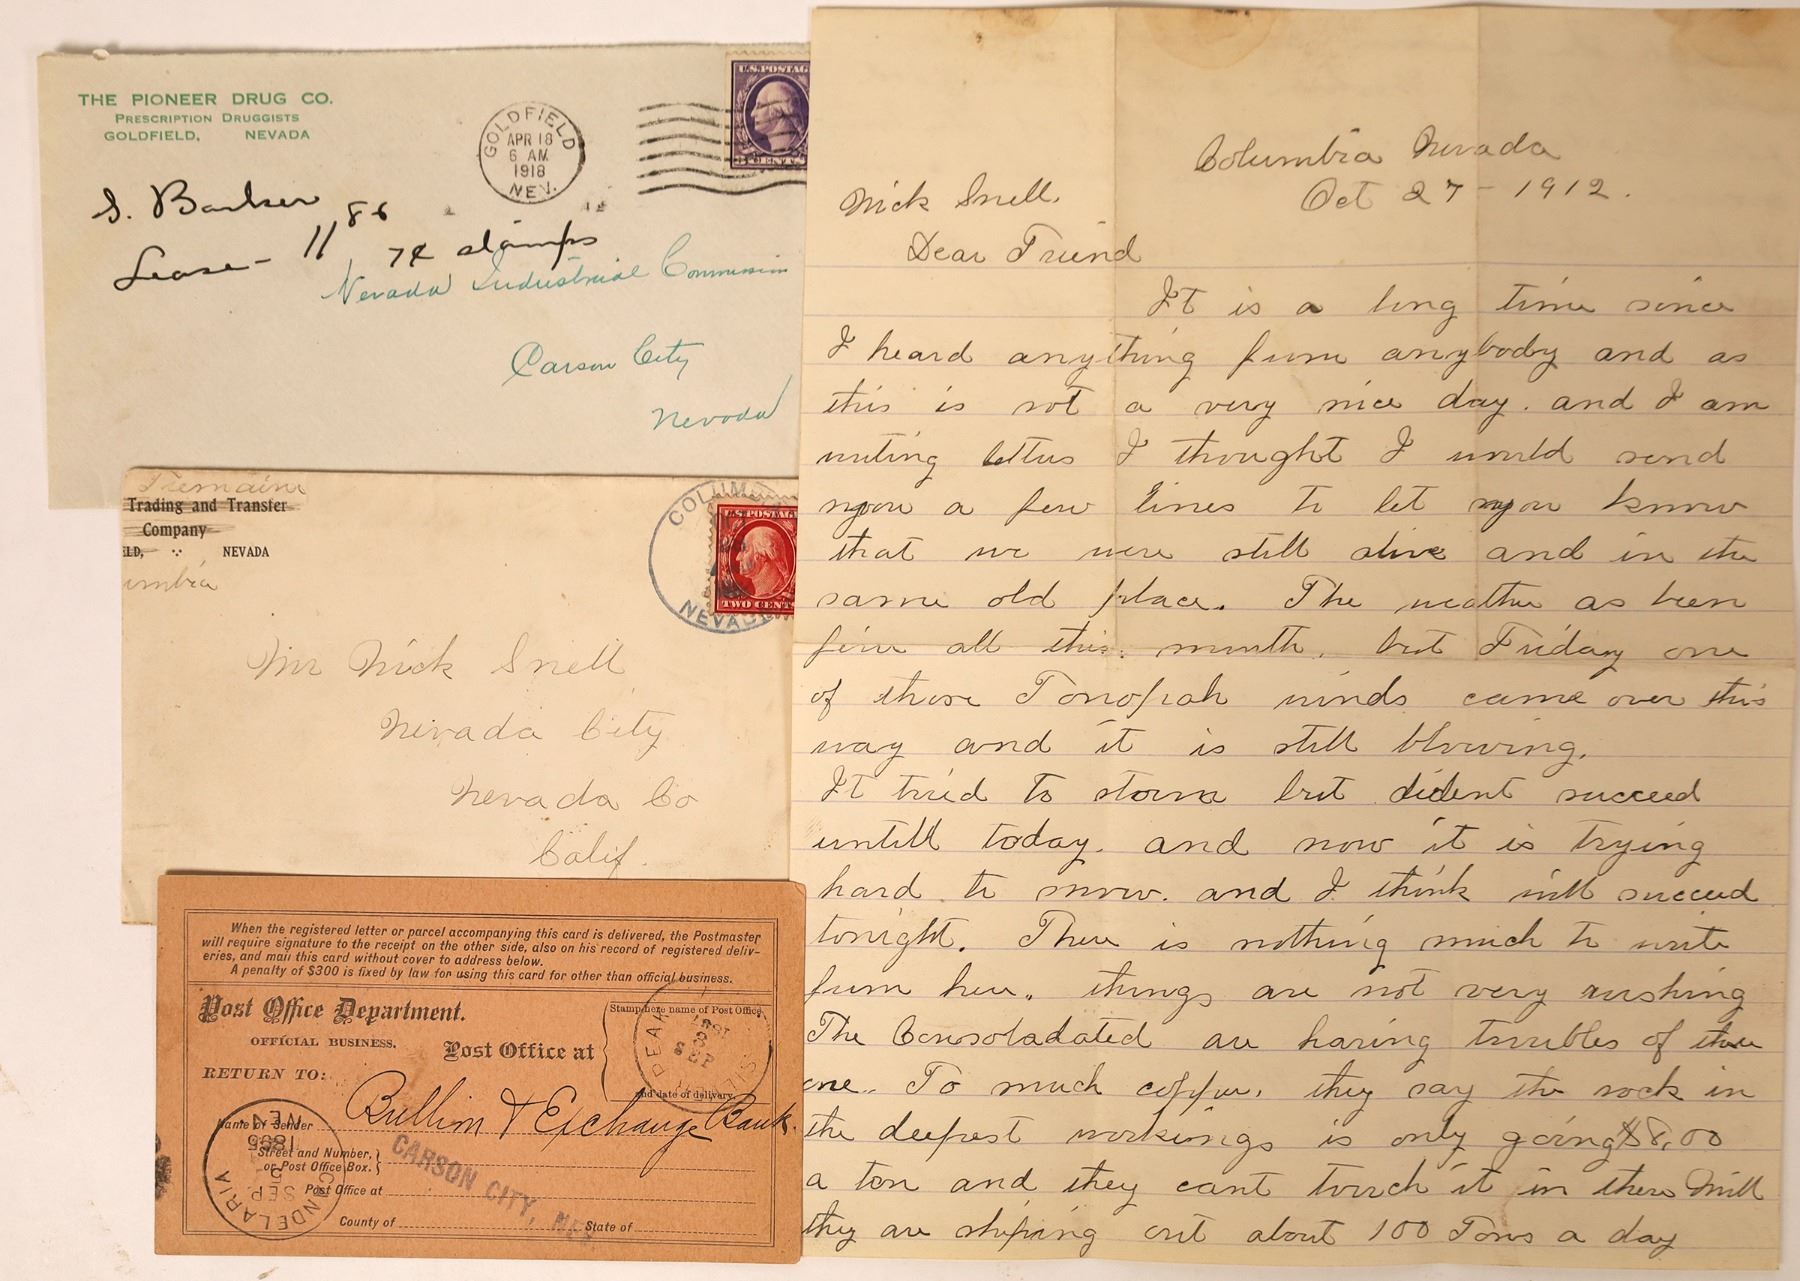 THE PIONEER DRUG CO.
PRESCRIPTION DRUGGISTS
GOLDFIELD, NEVADA
GOLDFIELD
APR 18
6 AM
1918
NEV.
U.S. POSTAG
3 CENTS
Lease - 11 86
7¢ stamps
Nevada Industrial Commission
Carson City
Nevada
Tremaine
Trading and Transfer
Company
LD, NEVADA
umbia
COLUM
NEVAD
U.S. POSTAG
TWO CENT
Mr Nick Snell
Nevada City
Nevada Co
Calif.
When the registered letter or parcel accompanying this card is delivered, the Postmaster
will require signature to the receipt on the other side, also on his record of registered deliv-
eries, and mail this card without cover to address below.
A penalty of $300 is fixed by law for using this card for other than official business.
Post Office Department.
OFFICIAL BUSINESS.
RETURN TO:
Post Office at
Stamp here name of Post Office
and date of delivery.
SEP
Bullion & Exchange Bank.
Name of Sender
Street and Number,
or Post Office Box.
Post Office at
County of
State of
CARSON CITY, NEV
CANDELARIA
SEP
2
1895
NEV
Columbia Nevada
Oct 27 - 1912.
Nick Snell.
Dear Friend
It is a long time since
I heard anything frum anybody and as
this is not a very nice day. and I am
writing letters I thought I would send
you a few lines to let you know
that we were still alive and in the
same old place. The weather as been
fine all this month. but Friday one
of those Tonopah winds came over this
way and it is still blowing.
It tried to storm but dident succeed
untill today. and now it is trying
hard to snow. and I think will succeed
tonight. There is nothing much to write
frum here. things are not very rushing
The Consoladated are having troubles of there
one. To much copper. they say the rock in
the deepest workings is only going $8,00
a ton and they cant touch it in there Mill
they are shiping out about 100 Tons a day